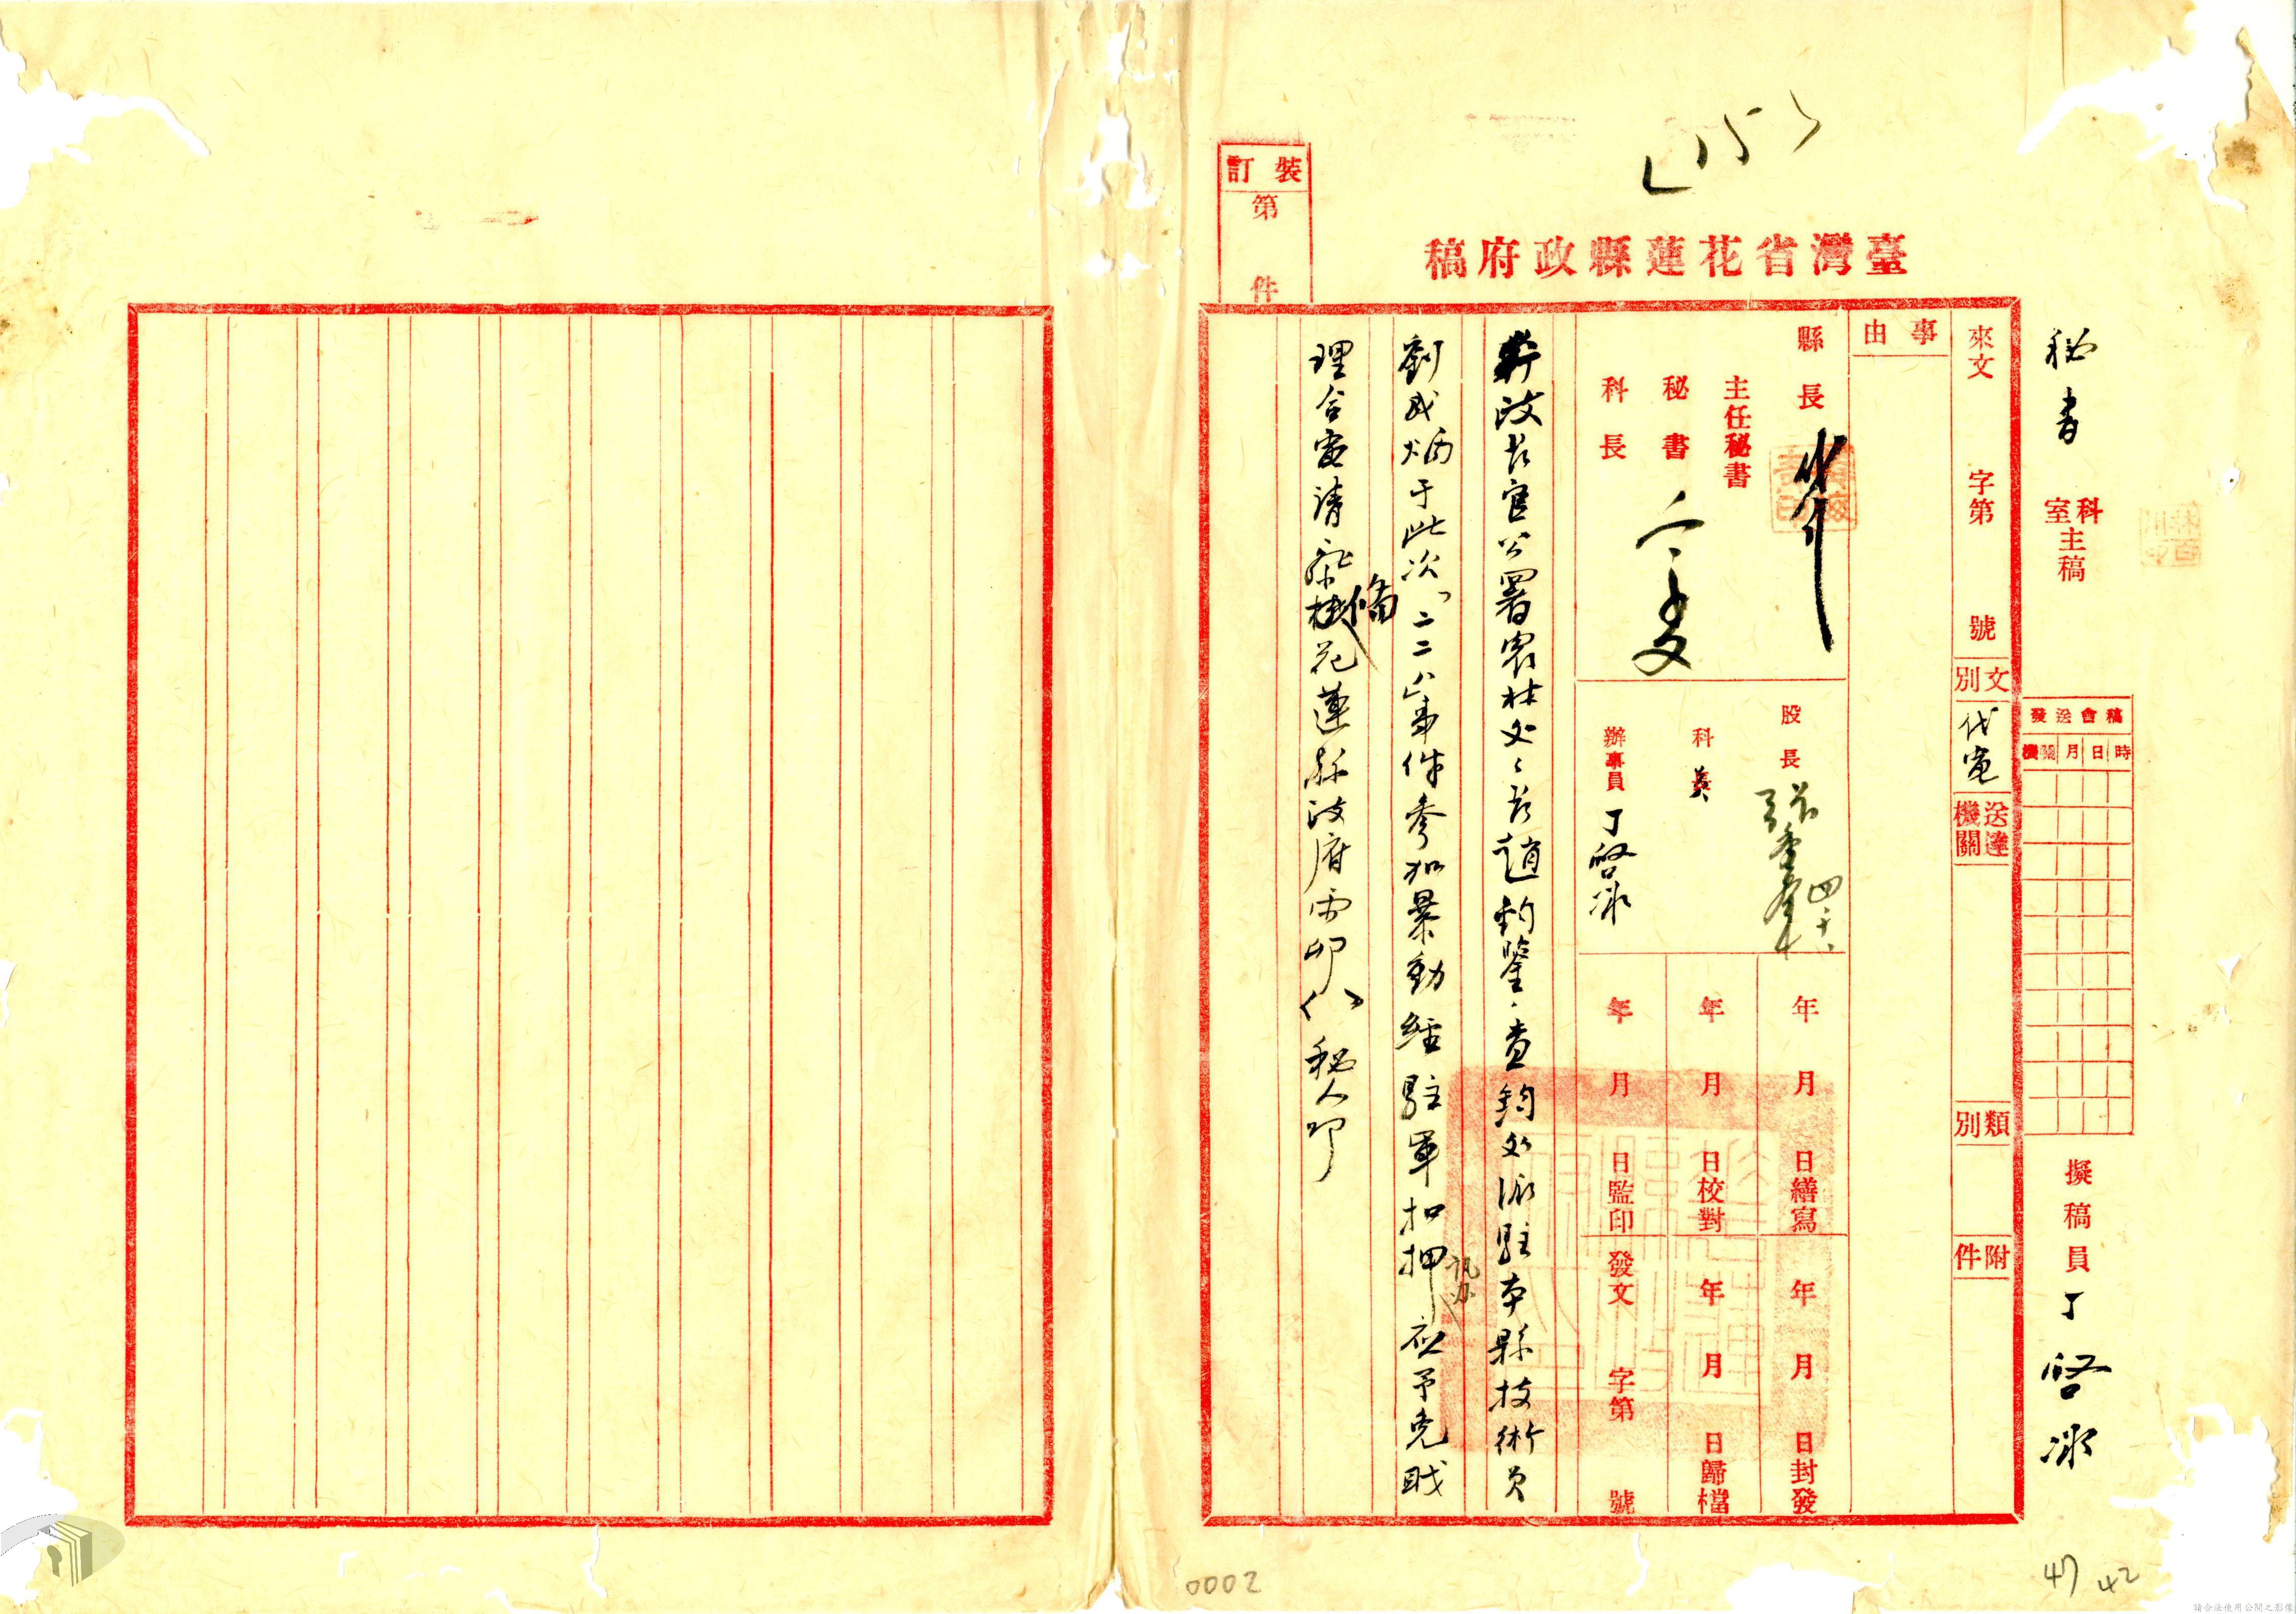 臺灣省花蓮縣政府稿
裝訂
第 件
秘書
科室主稿
稿會送發
時日月機關
擬稿員 丁啓冰
來文 字第 號
文別 代電
送達機關
類別
附件
事由
縣長
主任秘書
秘書
科長
股長 四、十八、
科員
辦事員 丁啓冰
年月日繕寫
年月日校對
年月日監印
年月日封發
年月日歸檔
發文 字第 號
政長官公署農林處處長趙鈞鑒、查鈞處派駐本縣技術員
劉成炳于此次「二二八」事件參加暴動經駐軍扣押訊办應予免職
理合電請察備花蓮縣政府 卯( )秘人印
0002
47 42
請合法使用公開之影像